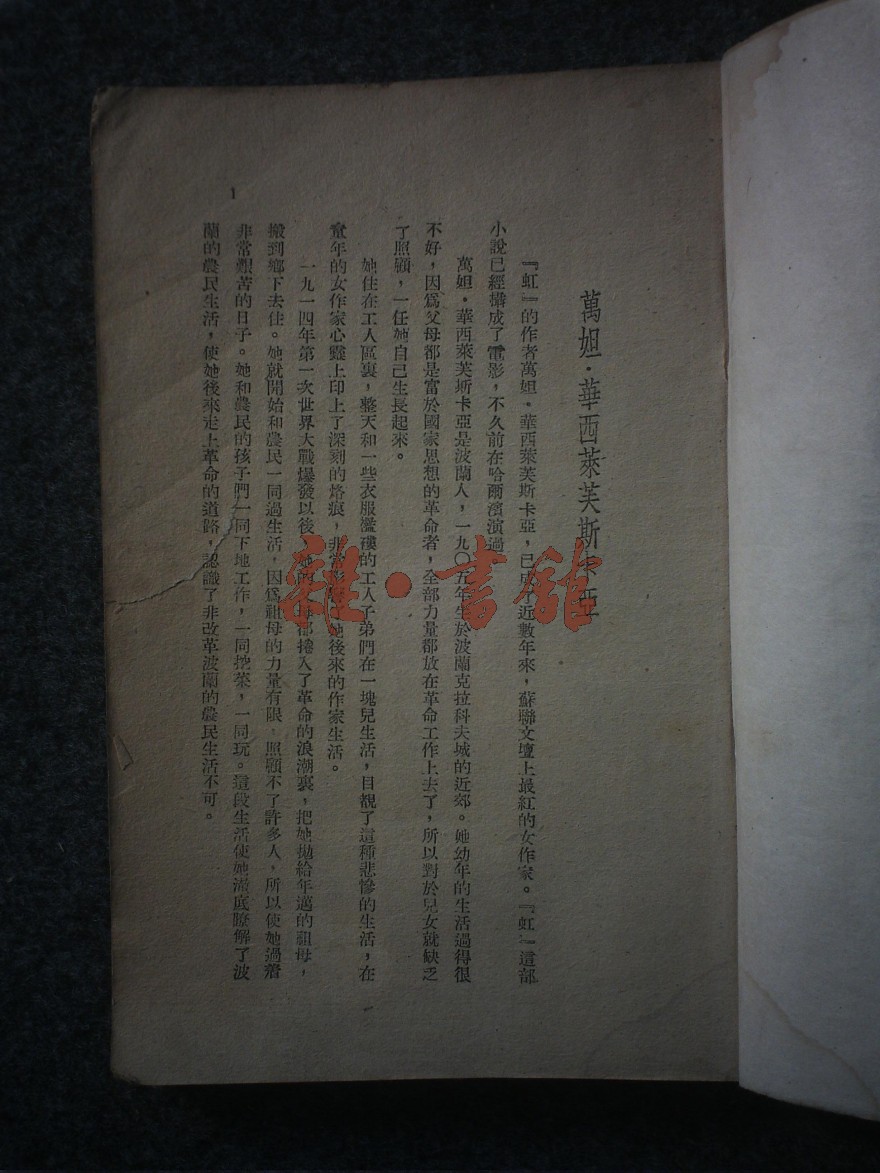 萬妲·華西萊芙斯卡亞
『虹』的作者萬妲·華西萊芙斯卡亞，已成了近數年來，蘇聯文壇上最紅的女作家。『虹』這部
小說已經攝成了電影，不久前在哈爾濱演過
萬妲·華西萊芙斯卡亞是波蘭人，一九〇五年生於波蘭克拉科夫城的近郊。她幼年的生活過得很
不好，因爲父母都是富於國家思想的革命者，全部力量都放在革命工作上去了，所以對於兒女就缺乏
了照顧，一任她自己生長起來。
她住在工人區裏，整天和一些衣服襤褸的工人子弟們在一塊兒生活，目覩了這種悲慘的生活，在
童年的女作家心靈上印上了深刻的烙痕，非常影響了她後來的作家生活。
一九一四年第一次世界大戰爆發以後，她的父母都捲入了革命的浪潮裏，把她拋給年邁的祖母，
搬到鄉下去住。她就開始和農民一同過生活，因爲祖母的力量有限，照顧不了許多人，所以使她過着
非常艱苦的日子。她和農民的孩子們一同下地工作，一同挖菜，一同玩。這段生活使她澈底瞭解了波
蘭的農民生活，使她後來走上革命的道路，認識了非改革波蘭的農民生活不可。
1
雜·書館